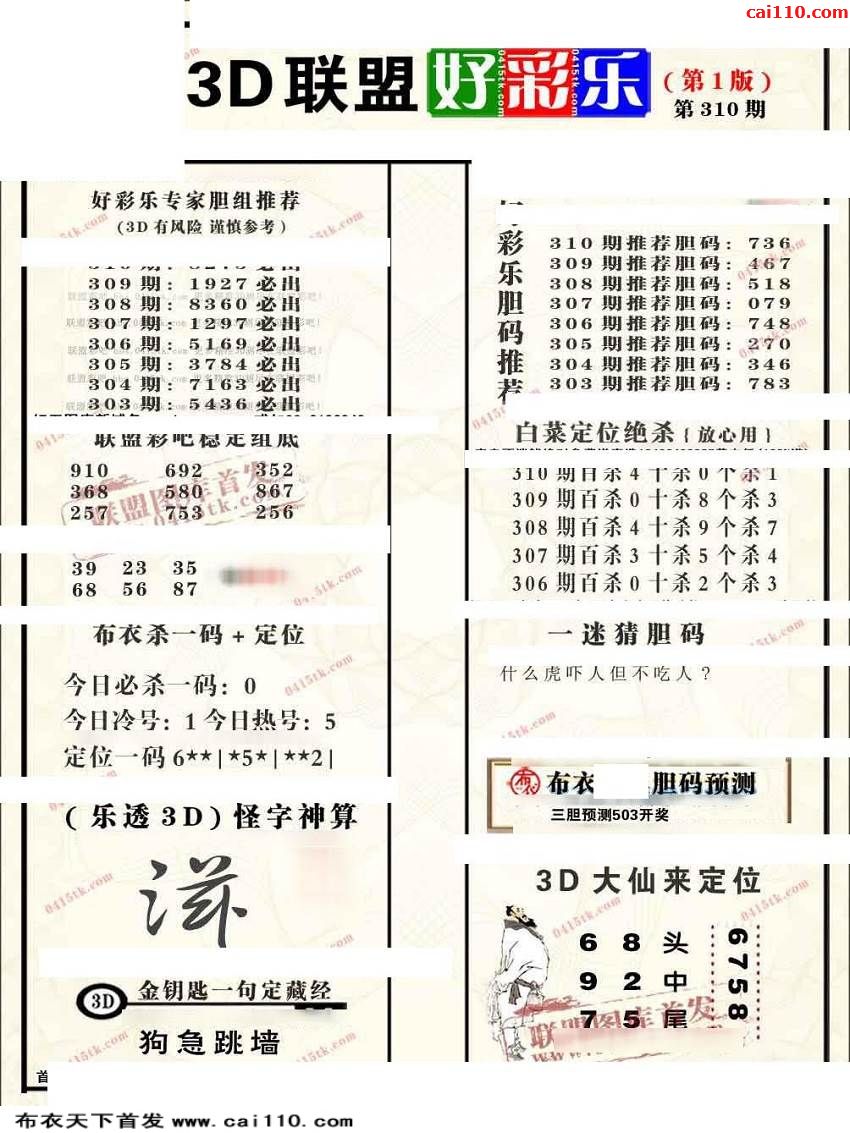 cai110.com
3D联盟好彩乐(第1版)
第310期
好彩乐专家胆组推荐
(3D有风险 谨慎参考)
309期: 1927必出
308期: 8360必出
307期: 1297必出
306期: 5169必出
305期: 3784必出
304期: 7163必出
303期: 5436必出
联盟彩吧稳定组底
910 692 352
368 580 867
257 753 256
39 23 35
68 56 87
布衣杀一码+定位
今日必杀一码: 0
今日冷号: 1 今日热号: 5
定位一码6**|*5*|**2|
(乐透3D)怪字神算
3D 金钥匙一句定藏经
狗急跳墙
彩乐胆码推荐
310期推荐胆码: 736
309期推荐胆码: 467
308期推荐胆码: 518
307期推荐胆码: 079
306期推荐胆码: 748
305期推荐胆码: 270
304期推荐胆码: 346
303期推荐胆码: 783
白菜定位绝杀{放心用}
310期百杀4十杀0个杀1
309期百杀0十杀8个杀3
308期百杀4十杀9个杀7
307期百杀3十杀5个杀4
306期百杀0十杀2个杀3
一迷猜胆码
什么虎吓人但不吃人?
布衣 胆码预测
三胆预测503开奖
3D大仙来定位
6 8 头
9 2 中
7 5 尾
6758
联盟图库首发
0415tk.com
首
布衣天下首发 www.cai110.com